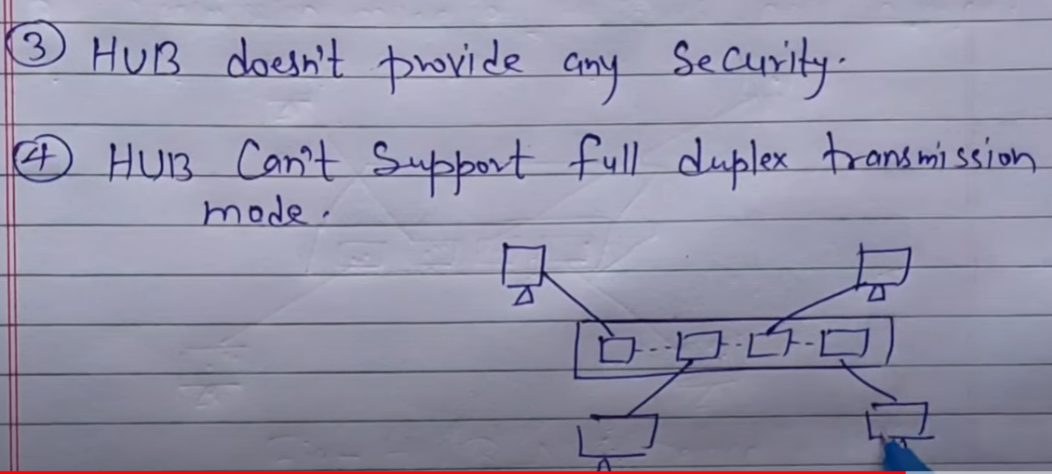 ③ HUB doesn't provide any Security.
④ HUB Can't Support full duplex transmission
mode.